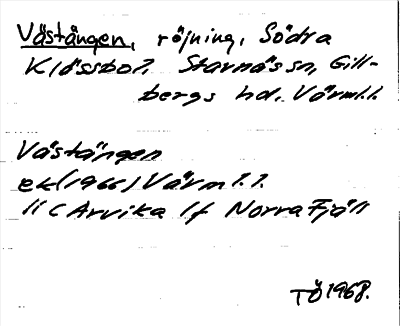 Västängen, röjning, Södra
Klässbol. Starnäs sn, Gill-
bergs hd. Värml.l.
Västängen
ek (1966) Värml.l.
11 C Arvika 1f Norra Fjäll
TÖ 1968.